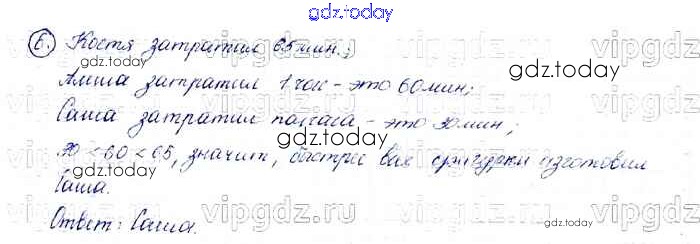 gdz.today
6. Костя затратил 65 мин.;
Алёша затратил 1 час - это 60 мин;
Саша затратил полчаса - это 30 мин;
30 < 60 < 65, значит, быстрее всех изготовил
Саша.
Ответ: Саша.
vipgdz.ru vipgdz.ru vipgdz.ru vipgdz.ru
gdz.today
gdz.today
gdz.today
gdz.today